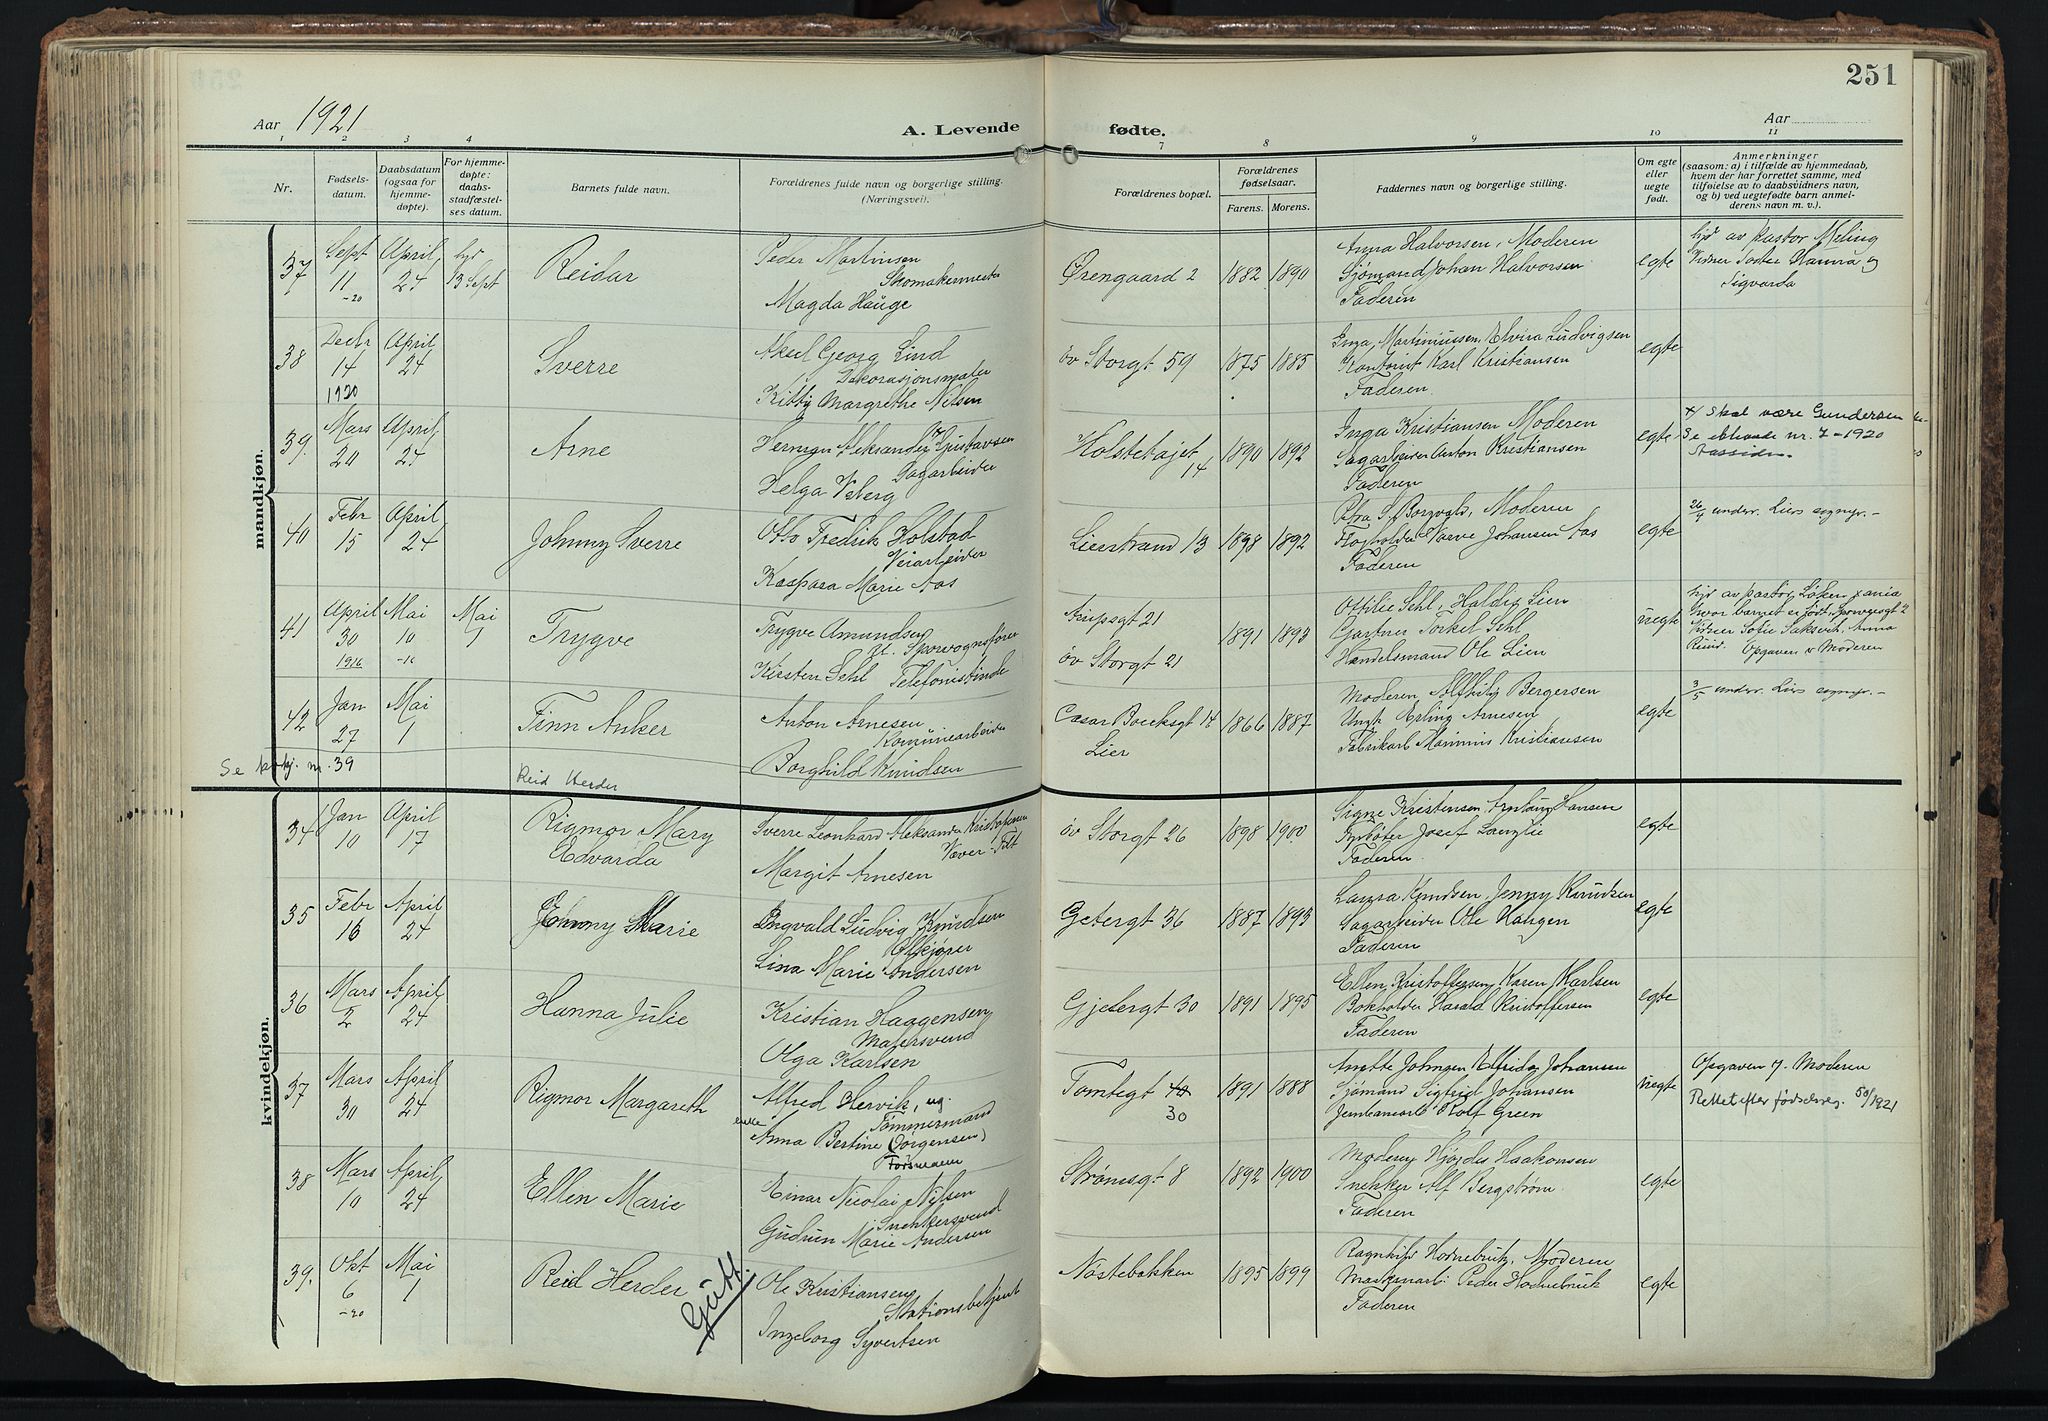 251
Aar 1921
A. Levende fødte.
Aar
1 2 3 4 7 8 9 10 11
Nr.
Fødsels-
datum.
Daabsdatum
(ogsaa for
hjemme-
døpte).
For hjemme-
døpte:
daabs-
stadfæstel-
ses datum.
Barnets fulde navn.
Forældrenes fulde navn og borgerlige stilling.
(Næringsvei).
Forældrenes bopæl.
Forældrenes
fødselsaar.
Farens. Morens.
Faddernes navn og borgerlige stilling.
Om egte
eller
uegte
født.
Anmerkninger
(saasom: a) i tilfælde av hjemmedaab,
hvem der har forrettet samme, med
tilføielse av to daabsvidners navn,
og b) ved uegtefødte barn anmel-
derens navn m. v.).
mandkjøn.
37
Sept
11
-20
April
24
hjd
13 Sept
Reidar
Peder Martinsen
Skomakermester
Magda Hauge
Ørengaard 2
1882 1890
Anna Halvorsen, Moderen
Sjømand Johan Halvorsen
Faderen
egte
hjd av pastor Meling
Sigvarda
38
Decbr
14
1920
April
24
Sverre
Aksel Georg Lind
Dekorasjonsmaler
Kitty Margrethe Nilsen
øv Storgt 59
1875 1885
Inga Martiniussen, Elvira Ludvigsen
Kontorist Karl Kristiansen
Faderen
egte
39.
Mars
20
April
24
Arne
Herman Aleksander Gustavsen
Sagarbeider
Helga Vsberg
Holstehajet
14
1890 1892
Inga Kristiansen Moderen
Sagarbeider Anton Kristiansen
Faderen
egte
x/ Skal være Gundersen
Se nr. 7-1920
40
Febr
15
April
24
Johnny Sverre
Otto Fredrik Holstad
Veiarbeider
Kaspara Marie Aas
Lierstrand 13
1898 1892
Petra S. Borgvald, Moderen
Johansen Aas
Faderen
egte
26/4 underr. Liers sognepr. -
41
April
30
1916
Mai
10
-16
Mai
1
Trygve
Trygve Amundsen
U. Sporvognsfører
Kirsten Sehl Telefonistinde
21
øv Storgt 21
1891 1893
Ottilie Sehl, Haldis Lien
Gartner Torkel Sehl
Handelsmand Ole Lien
uegte
hjd av pastor Løken
hvor barnet er født,
Vidner Sofie Saksvik, Anna
Rund. Opgaven v Moderen
42
Jan
27
Mai
1
Finn Anker
Anton Arnesen
Komunearbeider
Borghild Knudsen
Cæsar Boecksgt 14
Lier
1866 1887
Moderen Alfhild Bergersen
Ungk Erling Arnesen
Fabrikarb Marinius Kristiansen
egte
3/5 underr. Liers sognepr. -
Se kvkj. nr. 39
Reid Herder
kvindekjøn.
34
Jan
10
April
17
Rigmor Mary
Edvarda
Sverre Leonhard Aleksander Kristoffersen
Væver - Filt
Margit Arnesen
øv Storgt 26
1898 1900
Signe Kristensen Arnlaug Hansen
Fyrbøter Josef Langlie
Faderen
egte
35
Febr
16
April
24
Johnny Marie
Ingvald Ludvig Knudsen
Ølkjører
Lina Marie Andersen
Getergt 36
1887 1893
Laura Knudsen, Jenny Knudsen
Sagarbeider Ole Haugen
Faderen
egte
36
Mars
2
April
24
Hanna Julie
Kristian Haagensen
Malersvend
Olga Karlsen
Gjetergt 30
1891 1895
Ellen Kristoffersen, Karen Karlsen
Bokholder Harald Kristoffersen
Faderen
egte
37
Mars
30
April
24
Rigmor Margareth
Alfred Hervik, ug.
Tømmermand
enke
Anna Bertine (Jørgensen)
Forsmann
Tomtegt 40
30
1891 1888
Anette Johnsen Elfrida Johansen
Sjømand Sigfrid Johansen
Jernbanearb Rolf Green
uegte
Opgaven v. Moderen
Rettet efter fødselsreg. 50/1921
38
Mars
10
April
24
Ellen Marie
Einar Nicolai Nilsen
Snekkersvend
Gudrun Marie Andersen
Strømsgt 8
1892 1900
Moderen Hjørdis Haakonsen
Snekker Alf Bergstrøm
Faderen
egte
39.
Okt
6
-20
Mai
1
Reid Herder
Gutt.
Ole Kristiansen
Stationsbetjent
Ingeborg Syvertsen
Nøstebakken
1895 1899
Ragnhild Hornebruk, Moderen
Peder Hornebruk
Faderen
egte